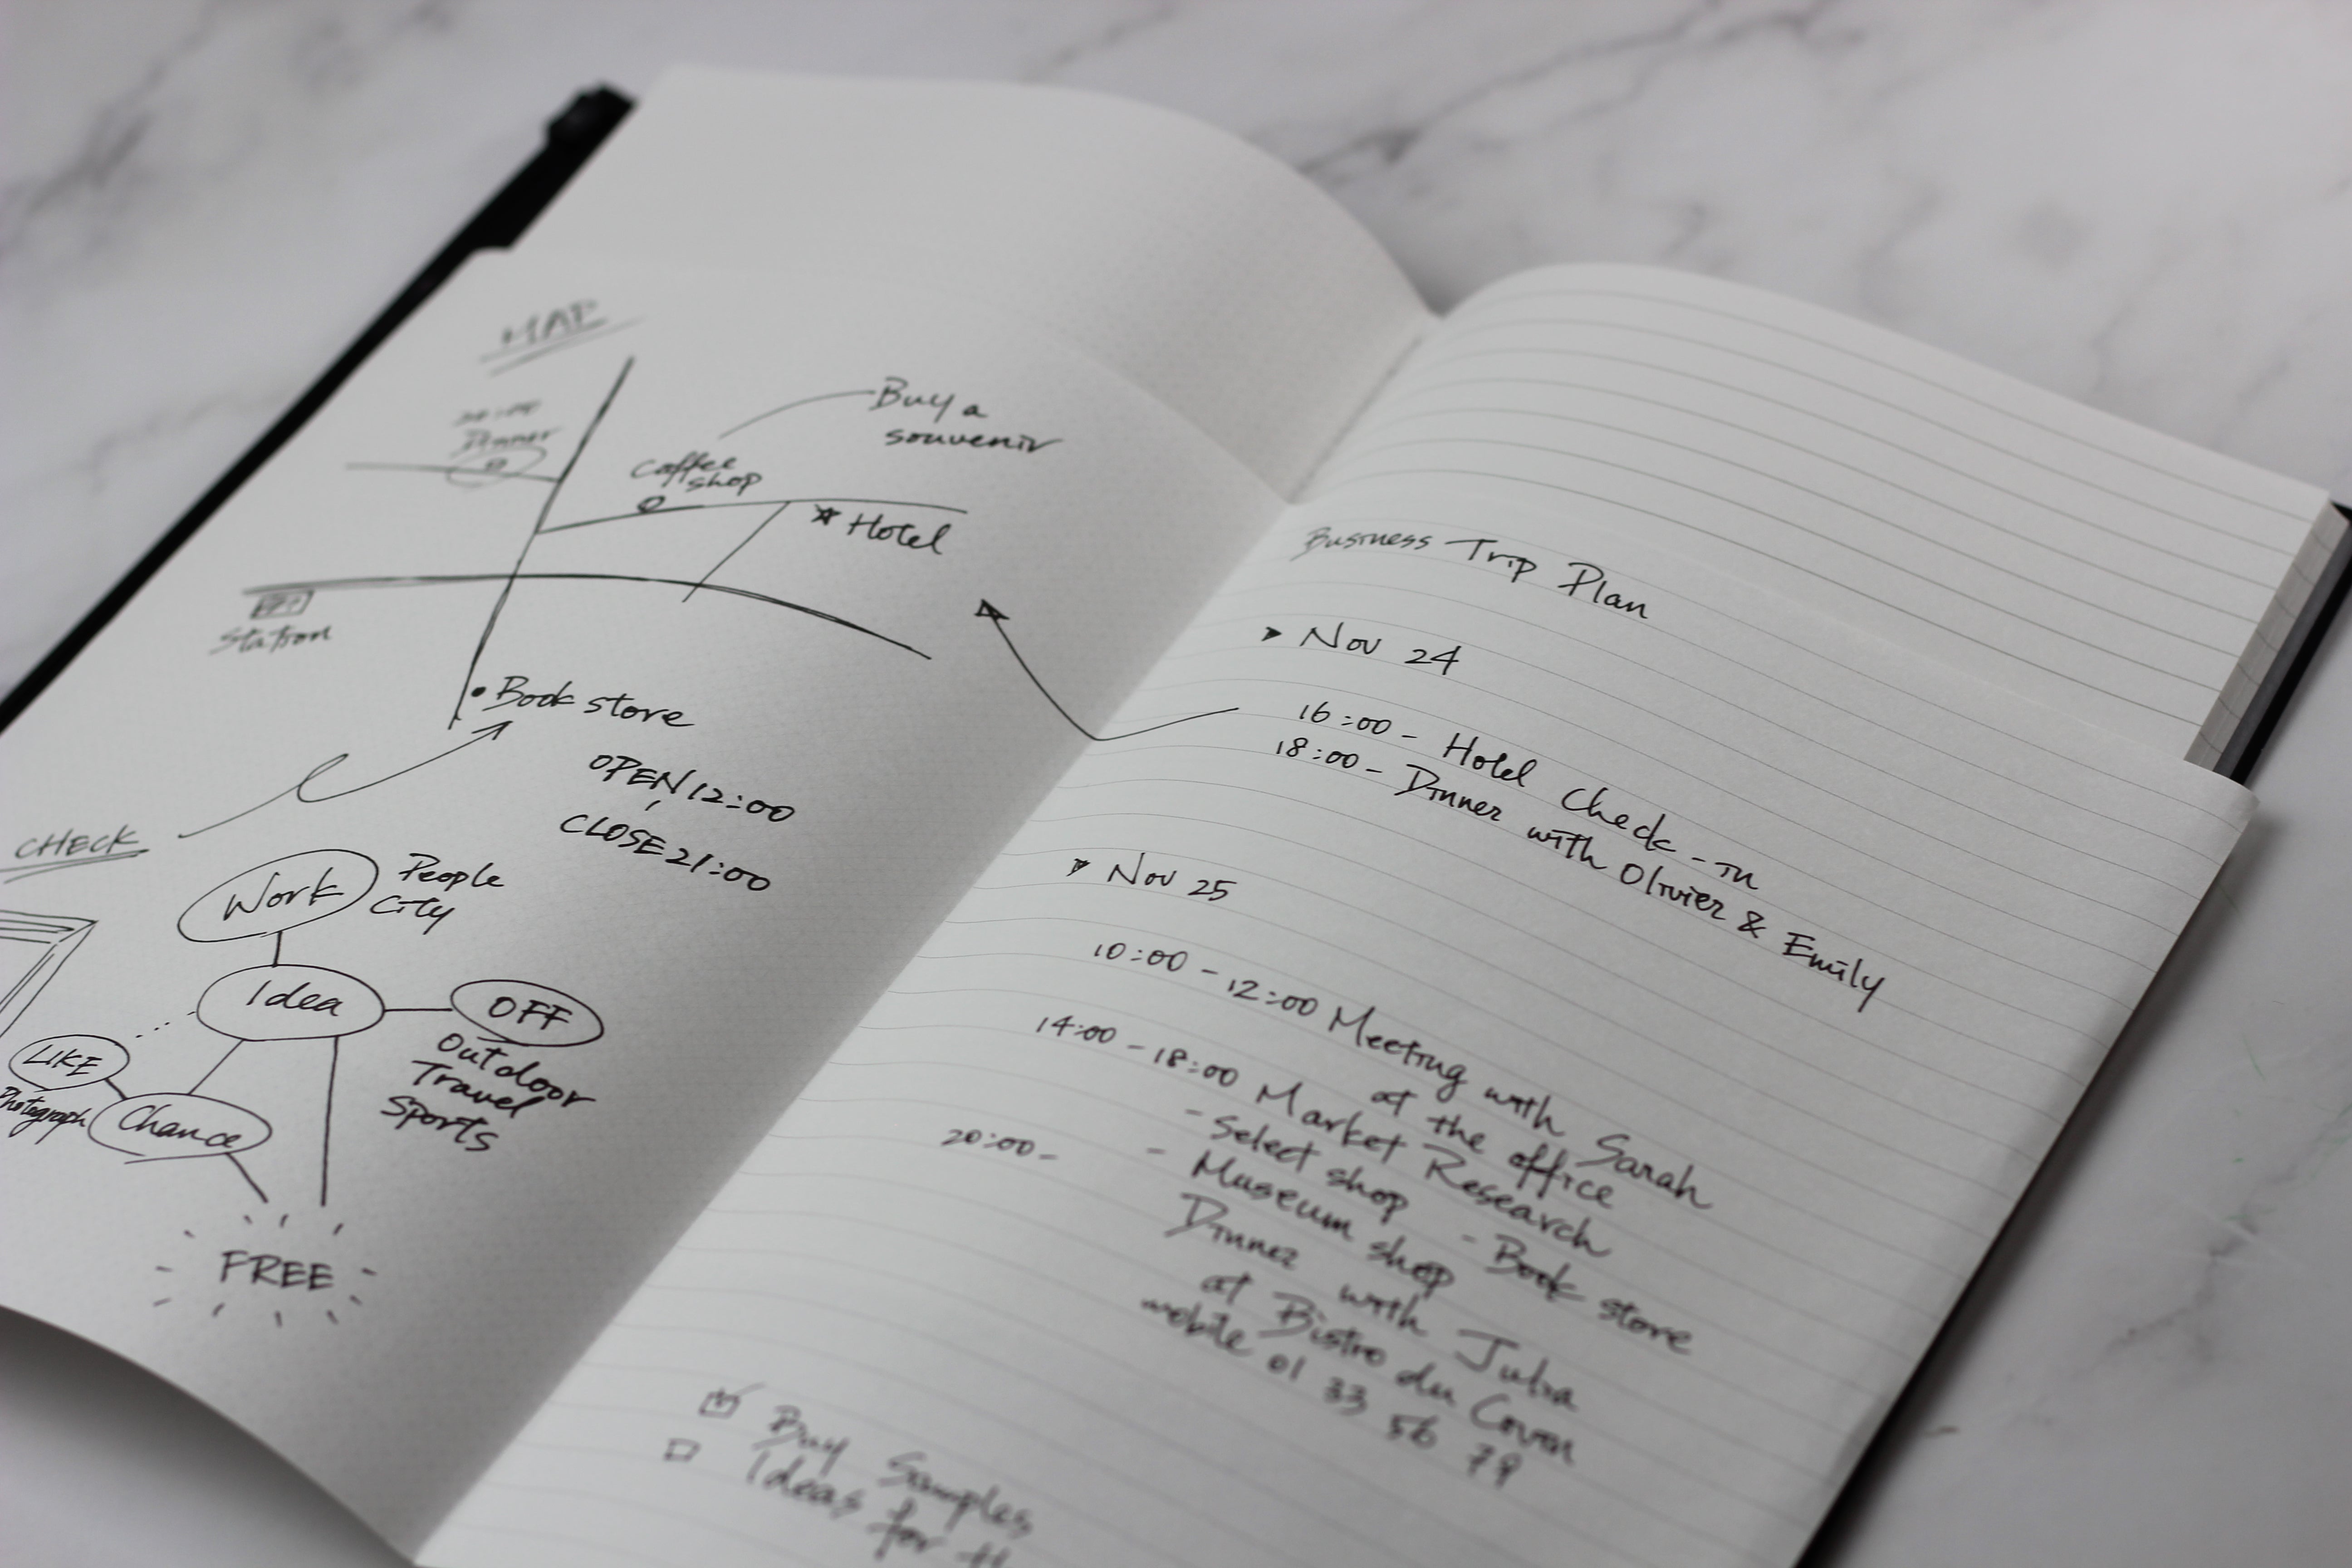 MAP
Dinner
Buy a
souvenir
Coffee
shop
Hotel
Station
Book store
OPEN 12:00
CLOSE 21:00
CHECK
Work
People
City
Idea
OFF
Outdoor
Travel
Sports
LIKE
Photograph
Chance
FREE
Business Trip Plan
Nov 24
16:00 - Hotel Check-in
18:00 - Dinner with Olivier & Emily
Nov 25
10:00 - 12:00 Meeting with Sarah
at the office
14:00 - 18:00 Market Research
- Select shop - Book store
- Museum shop
20:00 - Dinner with Julia
at Bistro du
mobile 01 33 56 79
Buy Samples
Ideas for